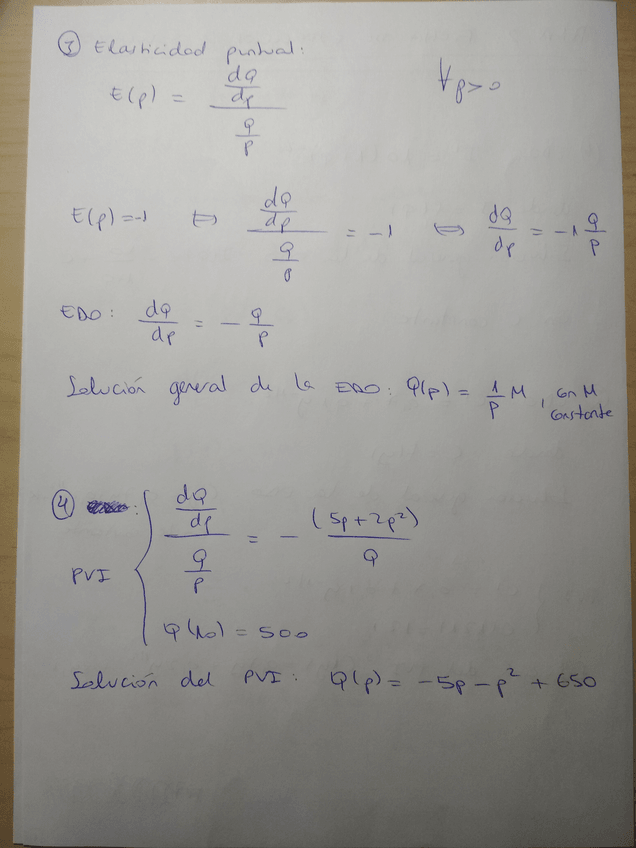 ③ Elasticidad puntual:
E(p) = (dQ/dp)/(Q/p) ∀p>0
E(p)=-1 ⟺ (dQ/dp)/(Q/p) = -1 ⟺ dQ/dp = -1 Q/p
EDO: dQ/dp = - Q/p
Solución general de la EDO: Q(p) = 1/p M, con M constante
④ PVI { (dQ/dp)/(Q/p) = - (5p+2p²)/Q
Q(10) = 500
Solución del PVI: Q(p) = -5p-p²+650